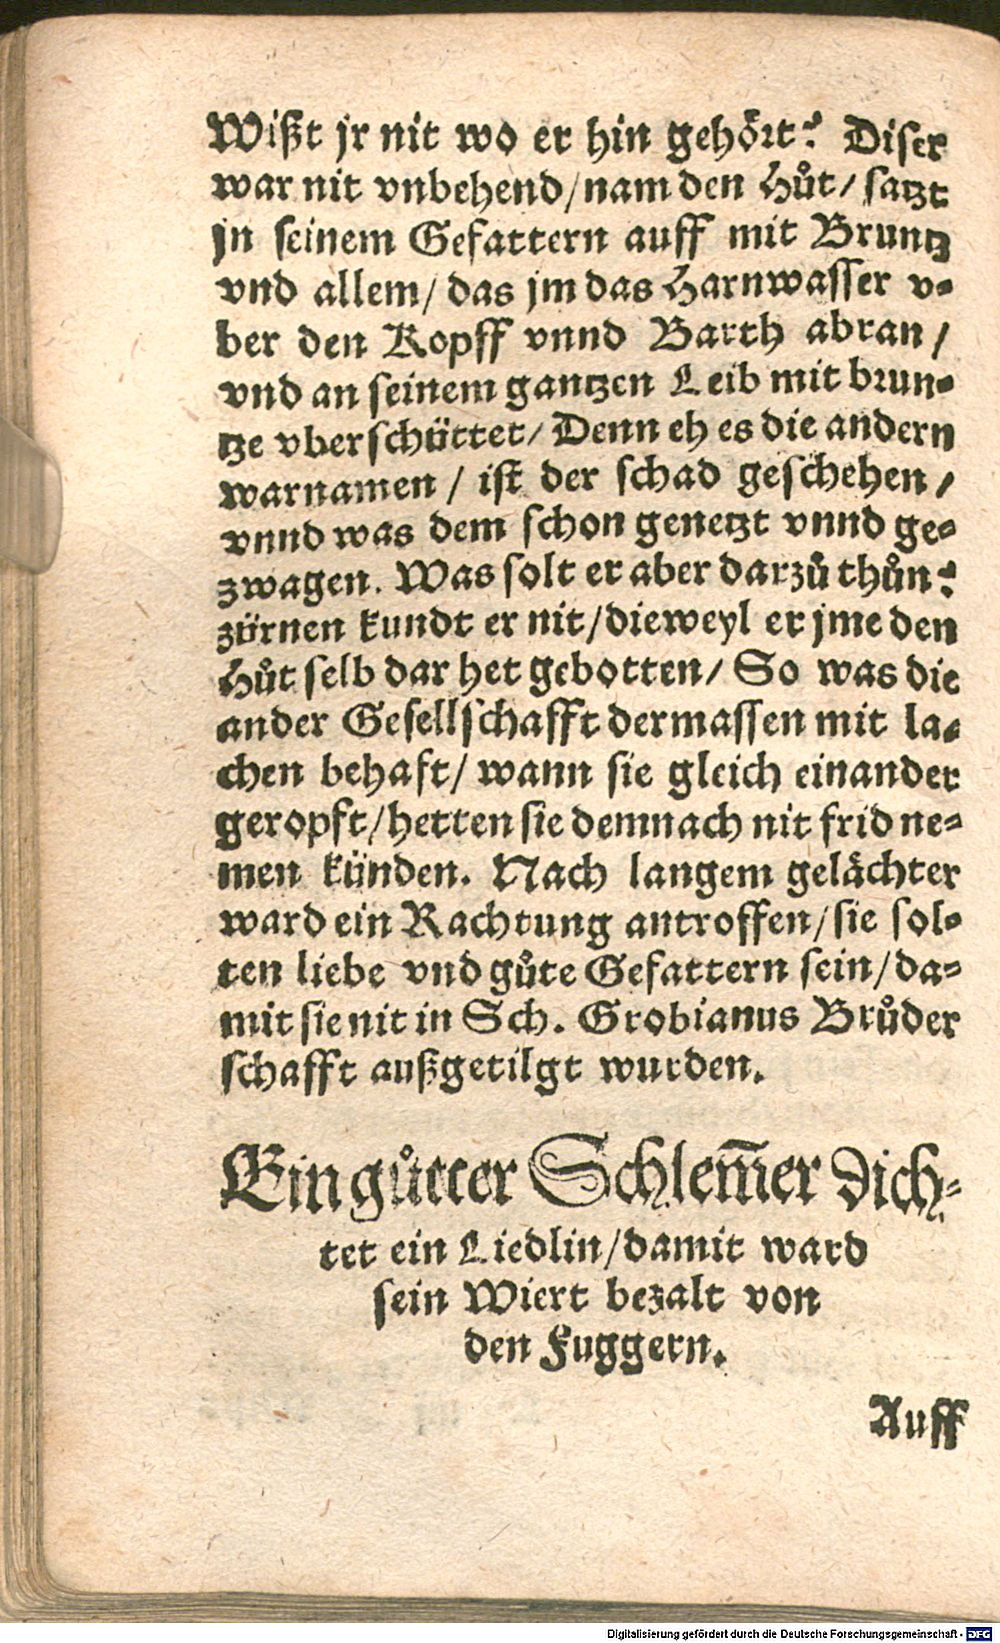 Wißt jr nit wo er hin gehoͤrt? Diser
war nit vnbehend/nam den Huͦt/ satzt
jn seinem Gefattern auff mit Bruntz
vnd allem/ das jm das Harnwasser v-
ber den Kopff vnnd Barth abran/
vnd an seinem gantzen Leib mit brun-
tze vberschuͤttet/ Denn eh es die andern
warnamen/ ist der schad geschehen/
vnnd was dem schon genetzt vnnd ge-
zwagen. Was solt er aber darzuͦ thuͦn?
zuͤrnen kundt er nit/dieweyl er jme den
Huͦt selb dar het gebotten/ So was die
ander Gesellschafft dermassen mit la-
chen behaft/ wann sie gleich einander
geropft/hetten sie demnach nit frid ne-
men kuͤnden. Nach langem gelaͤchter
ward ein Rachtung antroffen/sie sol-
ten liebe vnd guͦte Gefattern sein/da-
mit sie nit in Sch. Grobianus Bruͦder
schafft außgetilgt wurden.
Ein guͦtter Schlem̄er dich-
tet ein Liedlin/damit ward
sein Wiert bezalt von
den Fuggern.
Auff
Digitalisierung gefördert durch die Deutsche Forschungsgemeinschaft - DFG